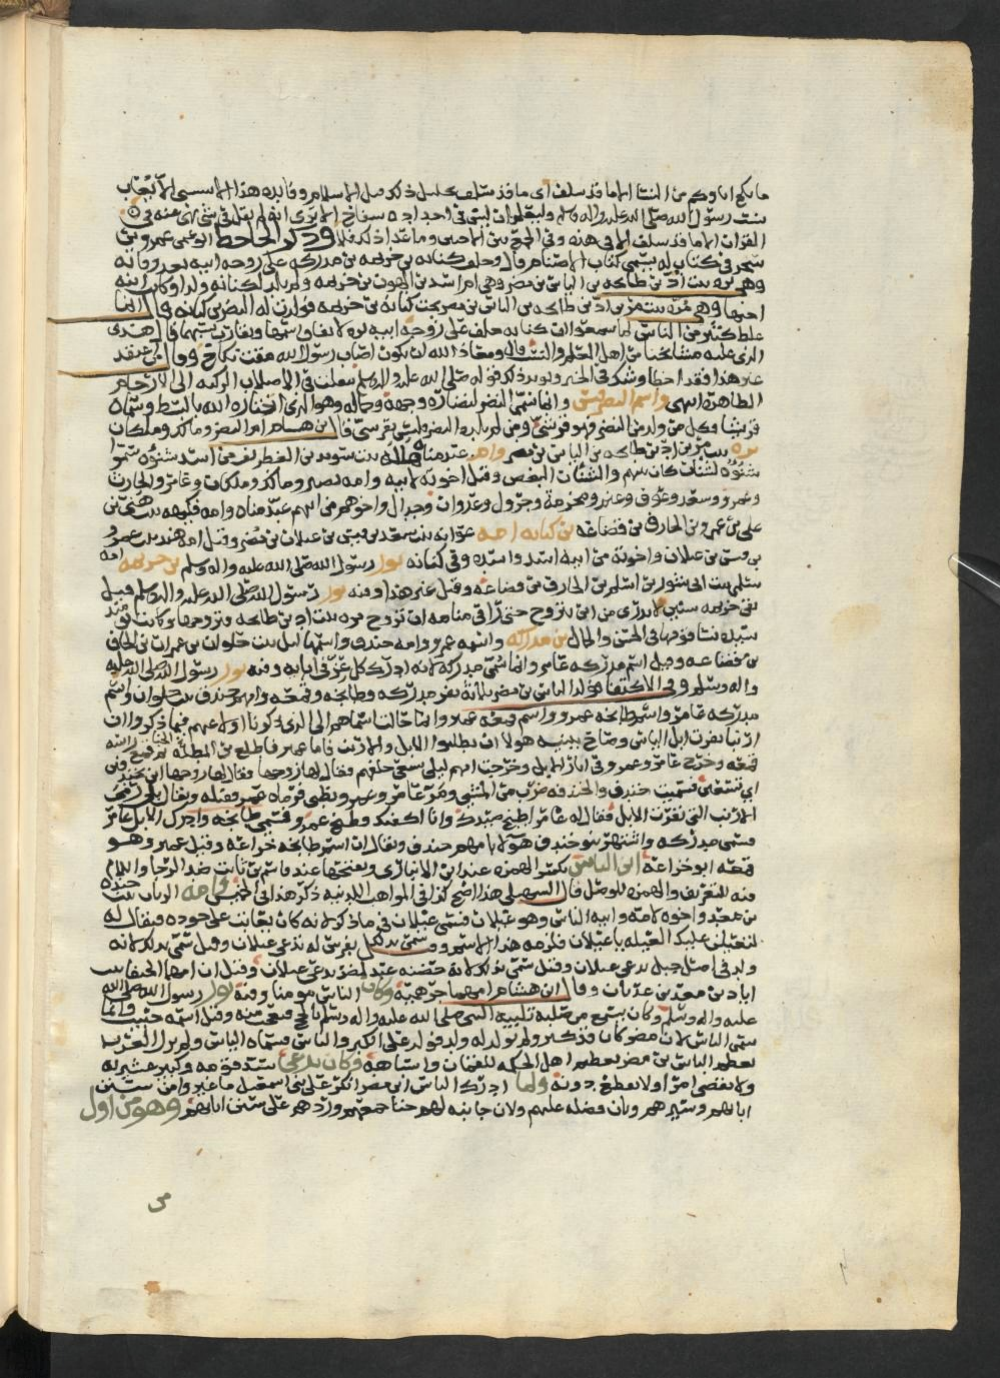 ما نكح اباوكم من النسا الا ما قد سلف اي ما قد سلف تحليل ذلك قبل الاسلام وفايدة هذا الاستثنى الا يعاب
نسب رسول الله صلى الله عليه واله وسلم وليعلم ان ليس في اجداده سفاح الا ترى انه لم يقل في شي نهى عنه في
القران الا ما قد سلف الا في هذه وفي الجمع بين الاختين وما عدا ذلك فلا وذكر الجاحظ ابو عثمن عمرو بن
بحر في كتاب له يسمى كتاب الاصنام قال وخلف كنانة بن خزيمة بن مدركة على زوجة ابيه بعد وفاته
وهي برة بنت اد بن طابخة بن الياس بن مضر وهي ام اسد بن الهون بن خزيمة ولم تلد لكنانة ولدا وكانت ابنة
اخيها وهي برة بنت مر بن اد بن طابخة بن الياس بن مضر تحت كنانة بن خزيمة فولدت له النضر بن كنانة قال وانما
غلط كثير من الناس لما سمعوا ان كنانة خلف على زوجة ابيه برة لاتفاق اسمها وتقارب نسبها قال هذا
الذي عليه مشايخنا من اهل العلم والنسب قال ومعاذ الله ان يكون اصاب رسول الله مقت نكاح وقال من اعتقد
غير هذا فقد اخطا وشك في الخبر ويويد ذلك قوله صلى الله عليه واله وسلم تنقلت في الاصلاب الزكية الى الارحام
الطاهرة انتهى واسم النضر قيس وانما سمي النضر لنضارة وجهه وجماله وهو الذي اختاره الله بالبسط وسماه
قريشا فكل من ولد من النضر فهو قرشي ومن لم يلده النضر فليس بقرشي قال ابن هشام ام النضر ومالك وملكان
برة بنت مر بن اد بن طابخة بن الياس بن مضر وام عبد مناة هالة بنت سويد بن الغطريف من ازد شنوة سموا
شنوة لشنان كان بينهم والشنان البغض وقيل اخوته لابيه وامه نضير ومالك وملكان وعامر والحارث
وعمرو وسعد وعوف وغنم ومخرمة وجرول وغزوان وجدال واخوهم من ابيهم عبد مناة وامه فكيهة بنت هني بن
بلي بن عمرو بن الحاف بن قضاعة بن كنانة امه عوانة بنت سعد بن قيس بن عيلان بن مضر وقيل امه هند بنت عمرو
بن قيس بن عيلان واخوته من ابيه اسد واسدة وفي كنانة نور رسول الله صلى الله عليه واله وسلم بن خزيمة امه
سلمى بنت اسلم بن الحاف بن قضاعة وقيل غير هذا وفيه نور رسول الله صلى الله عليه واله وسلم قيل
بقي خزيمة سنين لا يدري من اين يتزوج حتى راى في منامه ان تزوج برة بنت اد بن طابخة وتزوجها وكانت يومئذ
سيدة نسا قومها في الحسن والجمال بن مدركة واسمه عمرو وامه خندف واسمها ليلى بنت حلوان بن عمران بن الحاف
بن قضاعة وقيل اسم مدركة عامر وانما سمي مدركة لانه ادرك كل عز في ابايه وفيه نور رسول الله صلى الله عليه
واله وسلم وفي الاكتفا فولد الياس بن مضر ثلاثة نفر مدركة وطابخة وقمعة وامهم خندف بنت حلوان واسم
مدركة عامر واسم طابخة عمرو واسم قمعة عمير وانما حالت اسماهم الى الذي ذكرنا اولا عنهم فيما ذكروا ان
ارنبا نفرت ابل الياس وصاح ببنيه هولا ان يطلبوا الابل والارنب فاما عمير فاطلع من المظلة ثم قمع فسماه
قمعة وخرج عامر وعمرو في اثار الابل وخرجت امهم ليلى تسعى خلفهم فقال لها زوجها
اي تسعين فسميت خندف والخندفة ضرب من المشي ومر عامر وعمرو بظبي فرماه عمرو فقتله ويقال بل رمى
الارنب التي نفرت الابل فقال له عامر اطبخ صيدك وانا اكفيك وطبخ عمرو فسمي طابخة وادرك الابل عامر
فسمي مدركة واشتهر بنو خندف هولا بامهم خندف ويقال ان اسم طابخة خزاعة وقيل عمير وهو
قمعة ابو خزاعة ابن الياس بكسر الهمزة عند ابن الانباري وبفتحها عند قاسم بن ثابت ضد الرجا واللام
فيه للتعريف والهمزة للوصل قال السهيلي هذا اصح كذا في المواهب اللدنية ذكر هذا في الخميس وامه الرباب بنت حيدة
بن معد واخوه لامه وابيه الناس وهو عيلان فسمي عيلان في ما ذكر لانه كان يعاتب على جوده فيقال له
لتغلبن عليك العيلة يا عيلان فلزمه هذا الاسم وسمي بذلك بفرس له تدعى عيلان وقيل سمي بذلك لانه
ولد في اصل جبل يدعى عيلان وقيل سمي بذلك لانه حضنه عبد لمضر يدعى عيلان وقيل ان امهما الحنفا بنت
اياد بن معد بن عدنان وقال ابن هشام امهما جرهمية وكان الناس مومنا وفيه نور رسول الله صلى الله
عليه واله وسلم وكان يسمع من صلبه تلبية النبي صلى الله عليه واله وسلم بالحج فتعجب منه وقيل اسمه حبيب وانما
سمي الياس لان مضر كان قد كبر ولم يولد له ولد فولد على الكبر والياس فسماه الياس ولم تزل العرب
تعظم الياس بن مضر تعظيم اهل الحكمة للقمان واشباهه وكان يدعى سيد قومه وكبير عشيرته
ولا يقضى امر اولا يعظم دونه ولما ادرك الياس ابن مضر انكر على بني اسمعيل ما غيروا من سنن
ابايهم وسيرهم وبان فضله عليهم ولان جانبه لهم حتى جمعهم وردهم على سنن ابايهم وهو من اول